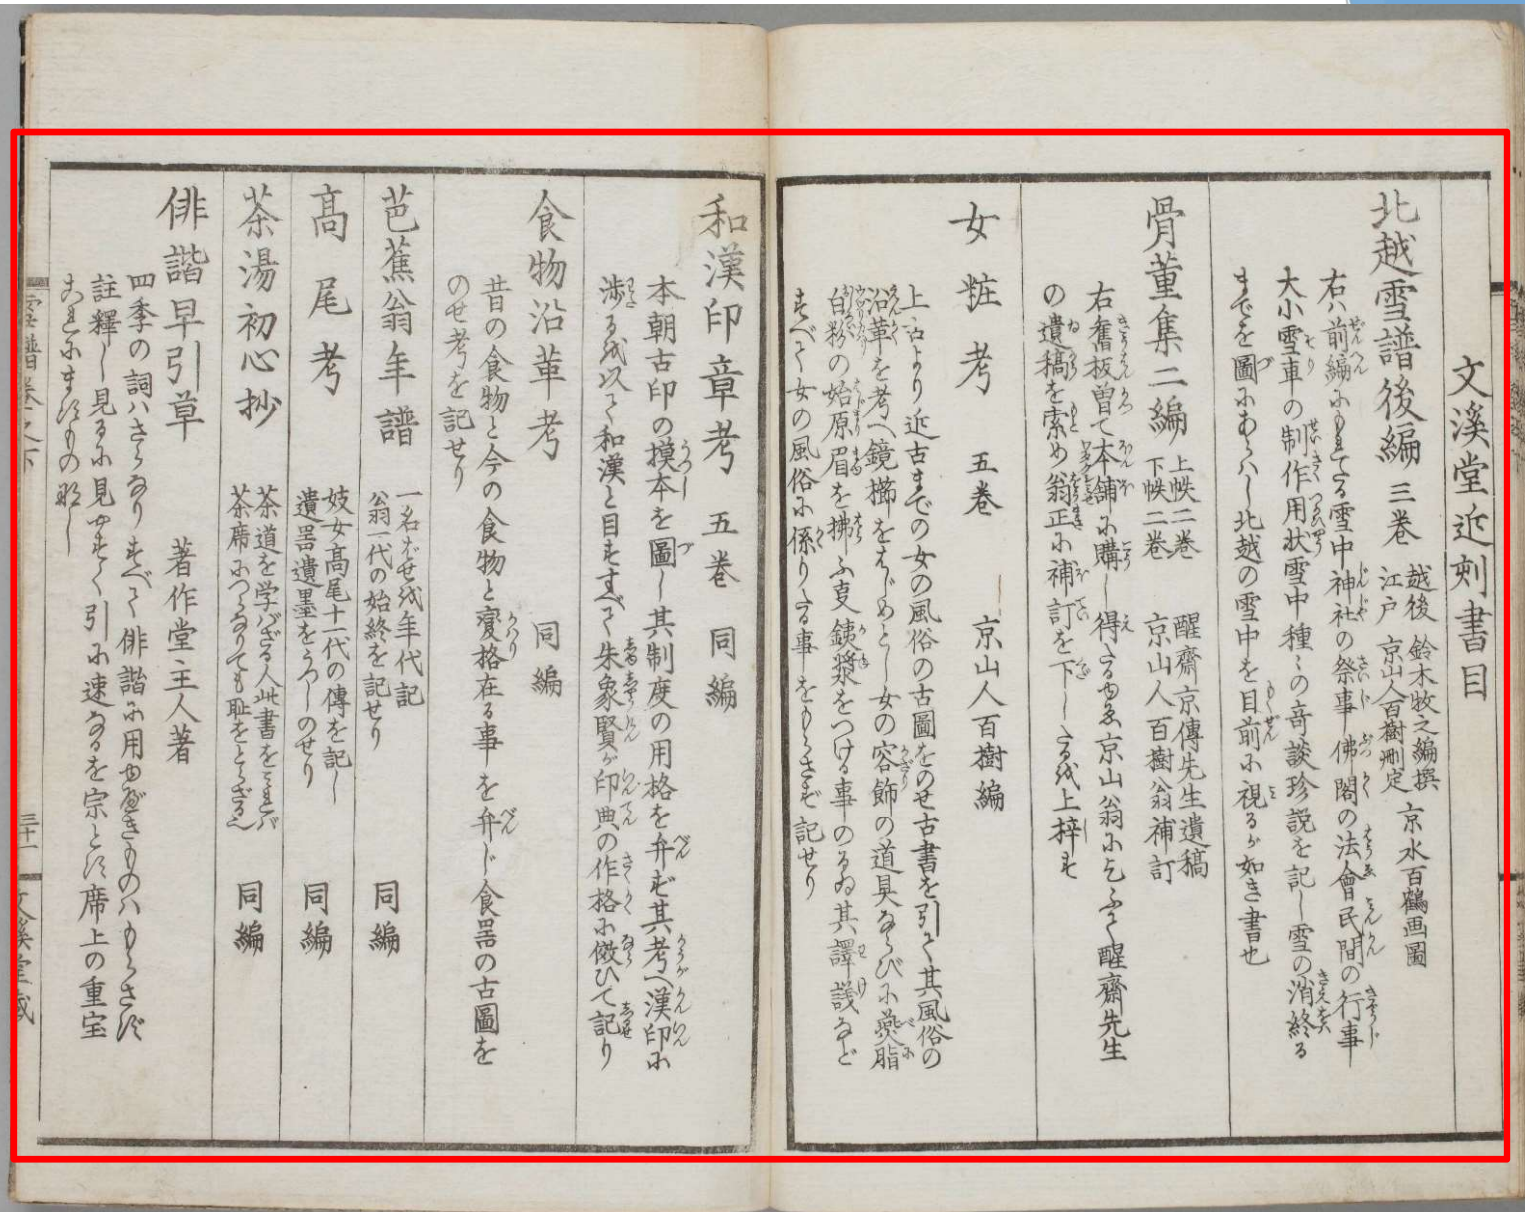 文溪堂近刻書目
北越雪譜後編 三巻 越後 鈴木牧之編撰 江戸 京山人百樹刪定 京水百鶴画圖
右ハ前編にもれたる雪中神社の祭事佛閣の法會民間の行事
大小雪車の制作用状雪中種々の竒談珍説を記し雪の消終る
までを圖にあらハし北越の雪中を目前に視るが如き書也
骨董集二編 上帙二巻 下帙二巻 醒齋京傳先生遺稿 京山人百樹翁補訂
右舊板曽て本舗に購し得たるゆゑ京山翁に乞ふて醒齋先生
の遺稿を索め翁正に補訂を下したるを上梓す
女粧考 五巻 京山人百樹編
上古より近古までの女の風俗の古圖をのせ古書を引て其風俗の
沿革を考へ鏡櫛をはじめとし女の容飾の道具ならびに臙脂
白粉の始原眉を拂ふ事鉄漿をつける事のるゐ其譯義など
すべて女の風俗に係りたる事をもらさず記せり
和漢印章考 五巻 同編
本朝古印の摸本を圖し其制度の用格を弁じ其考へ漢印に
渉るを以て和漢と目すすべて朱象賢が印典の作格に傚ひて記り
食物沿革考 同編
昔の食物と今の食物と變格在る事を弁じ食器の古圖を
のせ考を記せり
芭蕉翁年譜 一名ばせを年代記 翁一代の始終を記せり 同編
髙尾考 妓女髙尾十一代の傳を記し 遺器遺墨をうつしのせり 同編
茶湯初心抄 茶道を学バざる人此書をミれバ 茶席につらなりても耻をとらざるべし 同編
俳諧早引草 著作堂主人著
四季の詞ハさらなりすべて俳諧に用ゆべきものハもらさず
註釋し見るに見やすく引に速なるを宗とす席上の重宝
これにますもの那し
雪譜巻之下
三十一
文溪堂蔵